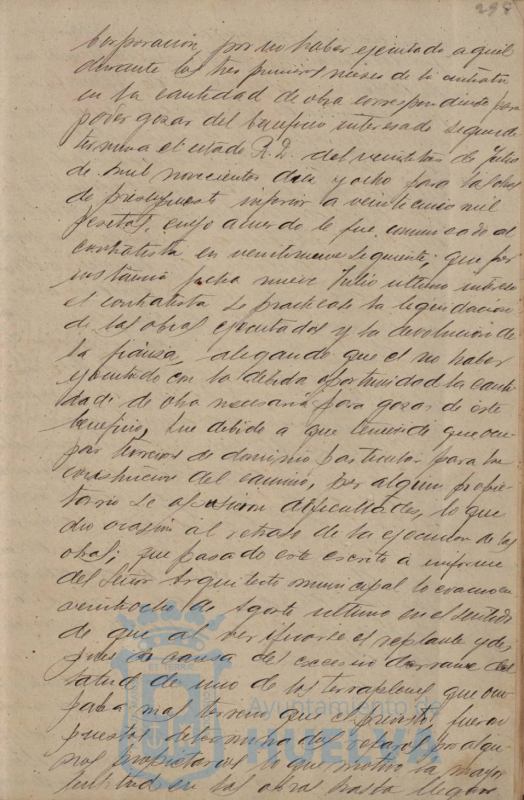 298
Corporación, por no haber ejecutado aquel
durante los tres primeros meses de la contrata
en la cantidad de obra correspondiente para
poder gozar del beneficio interesado segun de
termina el citado R.D. del veintitres de Julio
de mil novecientos diez y ocho para las obras
de presupuesto inferior a veinticinco mil
pesetas, cuyo acuerdo le fue comunicado al
contratista en veintinueve siguiente; que por
instancia fecha nueve Julio ultimo interesó
el contratista se practicase la liquidación
de las obras ejecutadas y la devolución de
la fianza, alegando que el no haber
ejecutado con la debida oportunidad la canti
dad de obra necesaria para gozar de este
beneficio, fue debido a que teniendo que ocu
par terrenos de dominio particular para la
construcción del camino, por algun propie
tario se opusieron dificultades, lo que
dio ocasión al retraso de la ejecución de las
obras; que pasado este escrito a informe
del Señor Arquitecto municipal lo evacuó en
veintiocho de Agosto ultimo en el sentido
de que al verificarse el replanteo y des
pues a causa del excesivo derrame del
talud de uno de los terraplenes que ocu
paba mas terreno que el previsto, fueron
puestos determinados reparos por algu
nos propietarios lo que motivó la mayor
lentitud en las obras hasta llegar
Ayuntamiento de
HUELVA